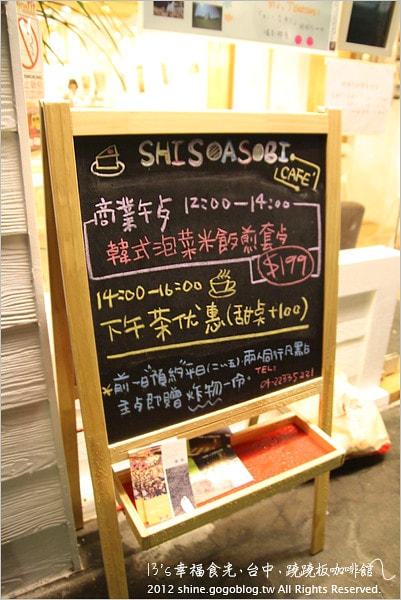 SHISOASOBI
CAFE'
商業午占 12:00-14:00
韓式泡菜米飯煎套占
$199
14:00-16:00
下午茶优惠(甜桌+100)
*前一日預約平日(二~五),兩人同行凡點
主占即贈炸物一份。
TEL:
04-22335231
B's幸福食光、台中、蹺蹺板咖啡館
2012 shine.gogoblog.tw All Rights Reserved.